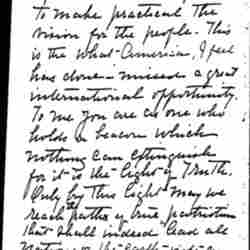 to make practical the
vision for the people. This
is the what America, I feel
has done - missed a great
international opportunity.
To me you are as one who
holds a beacon which
nothing can extinguish
for it is the light of Truth.
Only by This light may we
reach paths of true patriotism
that shall indeed lead all